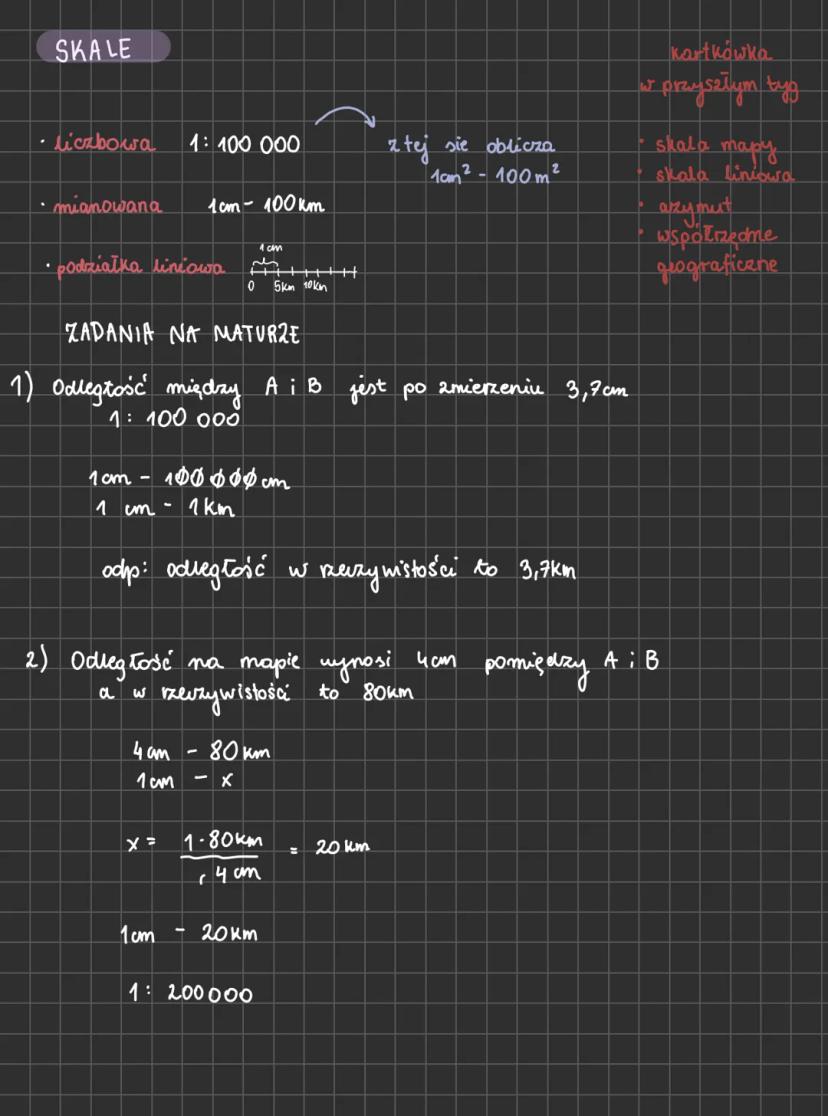 SKALE
kartkówka
w przyszłym tyg
• skala mapy
• skala liniowa
• azymut
• współrzędne
geograficzne
• liczbowa 1 : 100 000
z tej się oblicza
1cm² - 100 m²
• mianowana 1cm - 100 km
• podziałka liniowa
1 cm
0 5km 10km
ZADANIA NA MATURZE
1) Odległość między A i B jest po zmierzeniu 3,7cm
1 : 100 000
1cm - 100 000 cm
1 cm - 1 km
odp: odległość w rzeczywistości to 3,7km
2) Odległość na mapie wynosi 4cm pomiędzy A i B
a w rzeczywistości to 80km
4 cm - 80 km
1 cm - x
x = 1 · 80km / 4 cm = 20 km
1cm - 20 km
1 : 200 000